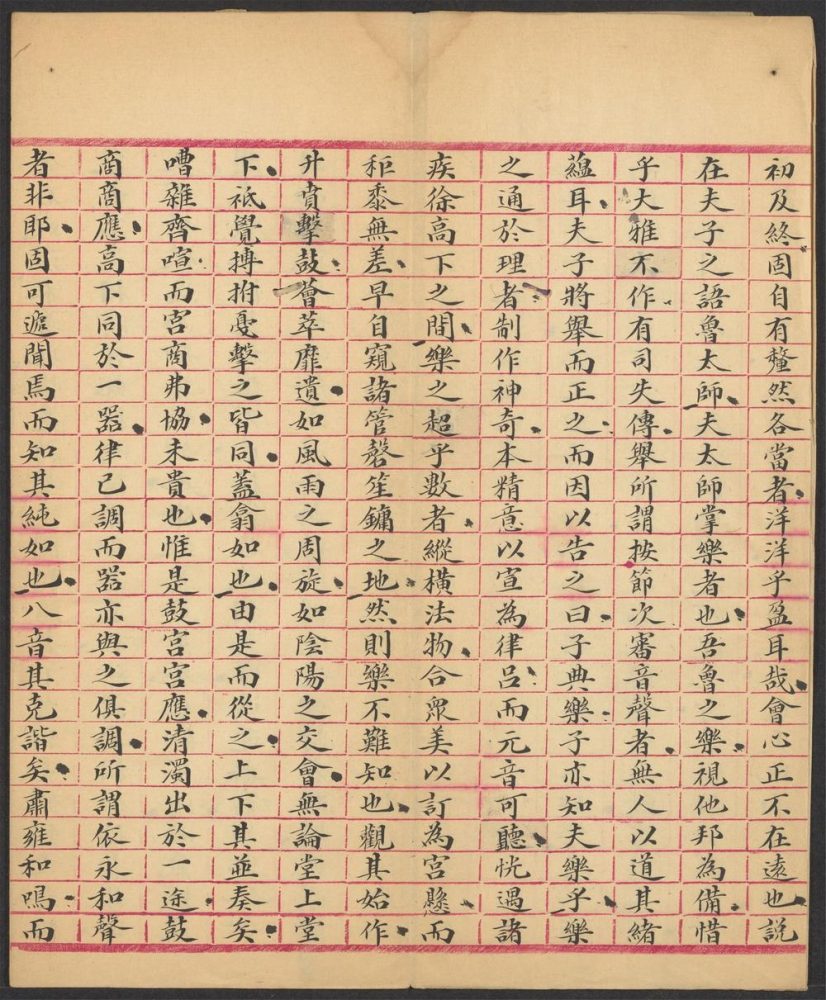 初及終固自有釐然各當者洋洋乎盈耳哉會心正不在遠也説
在夫子之語魯太師夫太師掌樂者也吾魯之樂視他邦為備惜
乎大雅不作有司失傳舉所謂按節次審音聲者無人以道其緒
蘊耳夫子將舉而正之而因以告之曰子典樂子亦知夫樂乎樂
之通於理者制作神奇本精意以宣為律呂而元音可聽恍遇諸
疾徐高下之間樂之超乎數者縱橫法物合眾美以訂為宮懸而
秬黍無差早自窺諸管磬笙鏞之地然則樂不難知也觀其始作
升賁擊鼓薈萃靡遺如風雨之周旋如陰陽之交會無論堂上堂
下祗覺搏拊戛擊之皆同蓋翕如也由是而從之上下其並奏矣
嘈雜齊喧而宮商弗協未貴也惟是鼓宮宮應清濁出於一途鼓
商商應高下同於一器律已調而器亦與之俱調所謂依永和聲
者非耶固可遞聞焉而知其純如也八音其克諧矣肅雍和鳴而